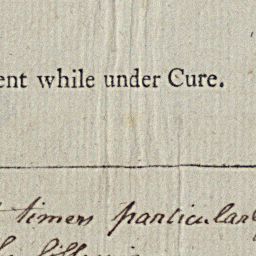 ent while under Cure.
timers particularly